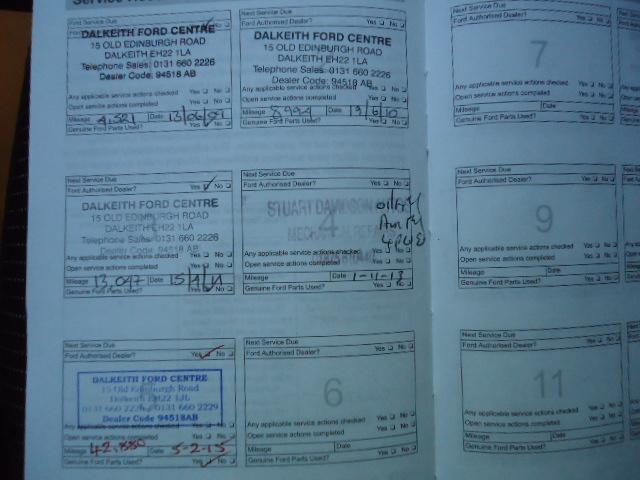 First Service Due
DALKEITH FORD CENTRE
15 OLD EDINBURGH ROAD
DALKEITH EH22 1LA
Telephone Sales: 0131 660 2226
Dealer Code: 94518 AB
Any applicable service actions checked Yes No
Open service actions completed Yes No
Mileage 4,521 Date 13/06/
Genuine Ford Parts Used? Yes No
Next Service Due
Ford Authorised Dealer? Yes No
DALKEITH FORD CENTRE
15 OLD EDINBURGH ROAD
DALKEITH EH22 1LA
Telephone Sales: 0131 660 2226
Dealer Code: 94518 AB
Any applicable service actions checked Yes No
Open service actions completed Yes No
Mileage 8994 Date 19/6/10
Genuine Ford Parts Used? Yes No
Next Service Due
Ford Authorised Dealer?
7
Any applicable service actions checked
Open service actions completed
Mileage Date
Genuine Ford Parts Used?
Next Service Due
Ford Authorised Dealer? Yes No
DALKEITH FORD CENTRE
15 OLD EDINBURGH ROAD
DALKEITH EH22 1LA
Telephone Sales: 0131 660 2226
Dealer Code: 94518 AB
Any applicable service actions checked Yes No
Open service actions completed Yes No
Mileage 13,047 Date
Genuine Ford Parts Used? Yes No
Next Service Due
Ford Authorised Dealer? Yes No
STUART
4
Any applicable service actions checked Yes No
Open service actions completed Yes No
Mileage Date 1-11-13
Genuine Ford Parts Used? Yes No
Next Service Due
Ford Authorised Dealer?
9
Any applicable service actions checked
Open service actions completed
Mileage Date
Genuine Ford Parts Used?
Next Service Due
Ford Authorised Dealer? Yes No
DALKEITH FORD CENTRE
15 Old Edinburgh Road
Dalkeith EH22 1JL
0131 660 2226 0131 660 2229
Dealer Code 94518AB
Any applicable service actions checked Yes No
Open service actions completed Yes No
Mileage 42,880 Date 5-2-15
Genuine Ford Parts Used? Yes No
Next Service Due
Ford Authorised Dealer? Yes No
6
Any applicable service actions checked Yes No
Open service actions completed Yes No
Mileage Date
Genuine Ford Parts Used? Yes No
Next Service Due
Ford Authorised Dealer? Yes No
11
Any applicable service actions checked Yes No
Open service actions completed Yes No
Mileage Date
Genuine Ford Parts Used? Yes No